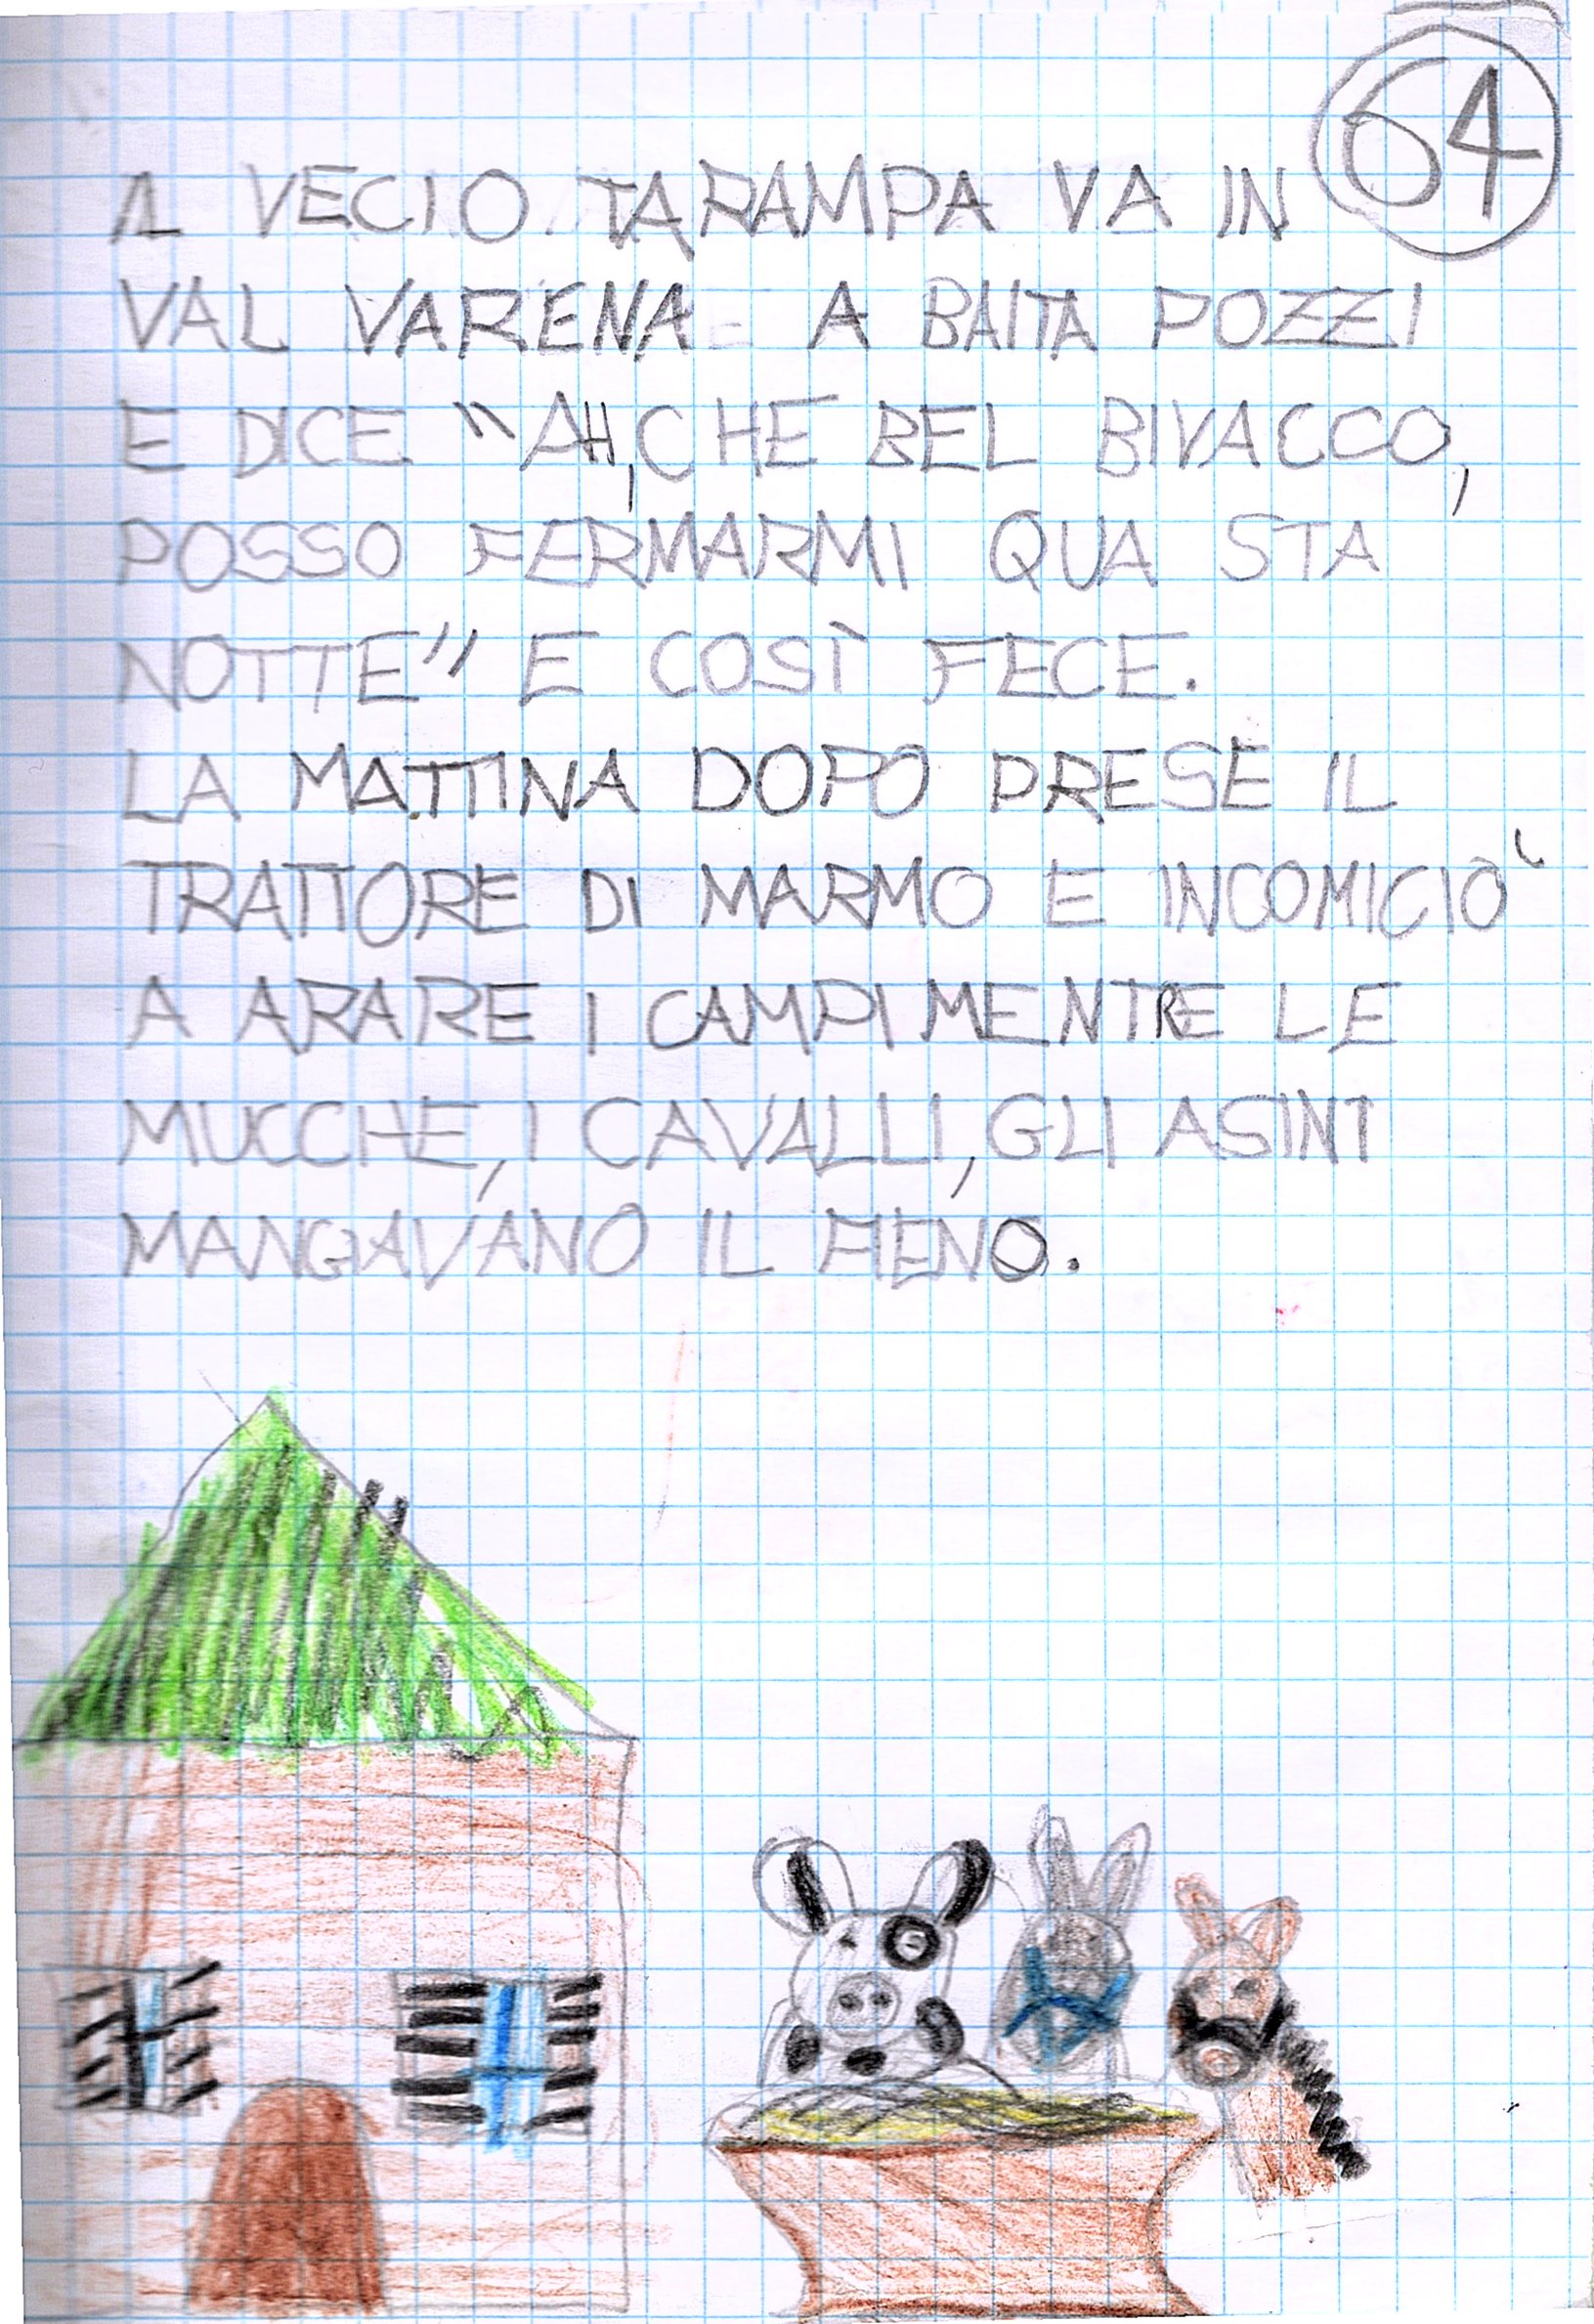 64
IL VECIO TARAMPA VA IN
VAL VARENA A BAITA POZZI
E DICE "AH, CHE BEL BIVACCO,
POSSO FERMARMI QUA STA
NOTTE" E COSÌ FECE.
LA MATTINA DOPO PRESE IL
TRATTORE DI MARMO E INCOMICIÒ
A ARARE I CAMPI MENTRE LE
MUCCHE, I CAVALLI, GLI ASINI
MANGAVANO IL FIENO.